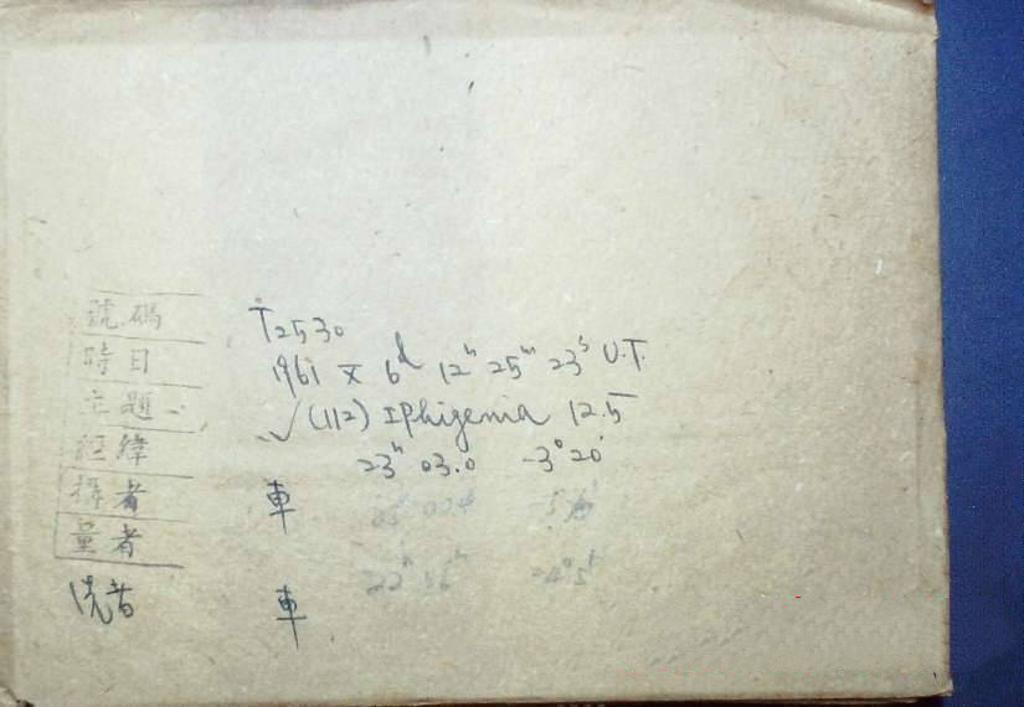 號碼 T2530
時日 1961 X 6d 12h 25m 23s U.T.
主題 ✓(112) Iphigenia 12.5
經緯 23h 03.0 -3°20'
攝者 車
量者
洗者 車